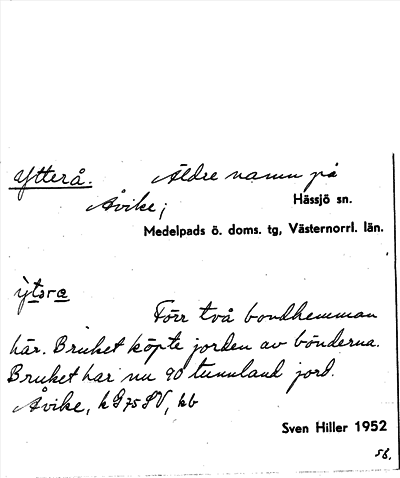 Ytterå. Äldre namn på
Åvike; Hässjö sn.
Medelpads ö. doms. tg, Västernorrl. län.
ỳtəra
Förr två bondhemman
här. Bruket köpte jorden av bönderna.
Bruket har nu 90 tunnland jord.
Åvike, k G 75 SV, kb
Sven Hiller 1952